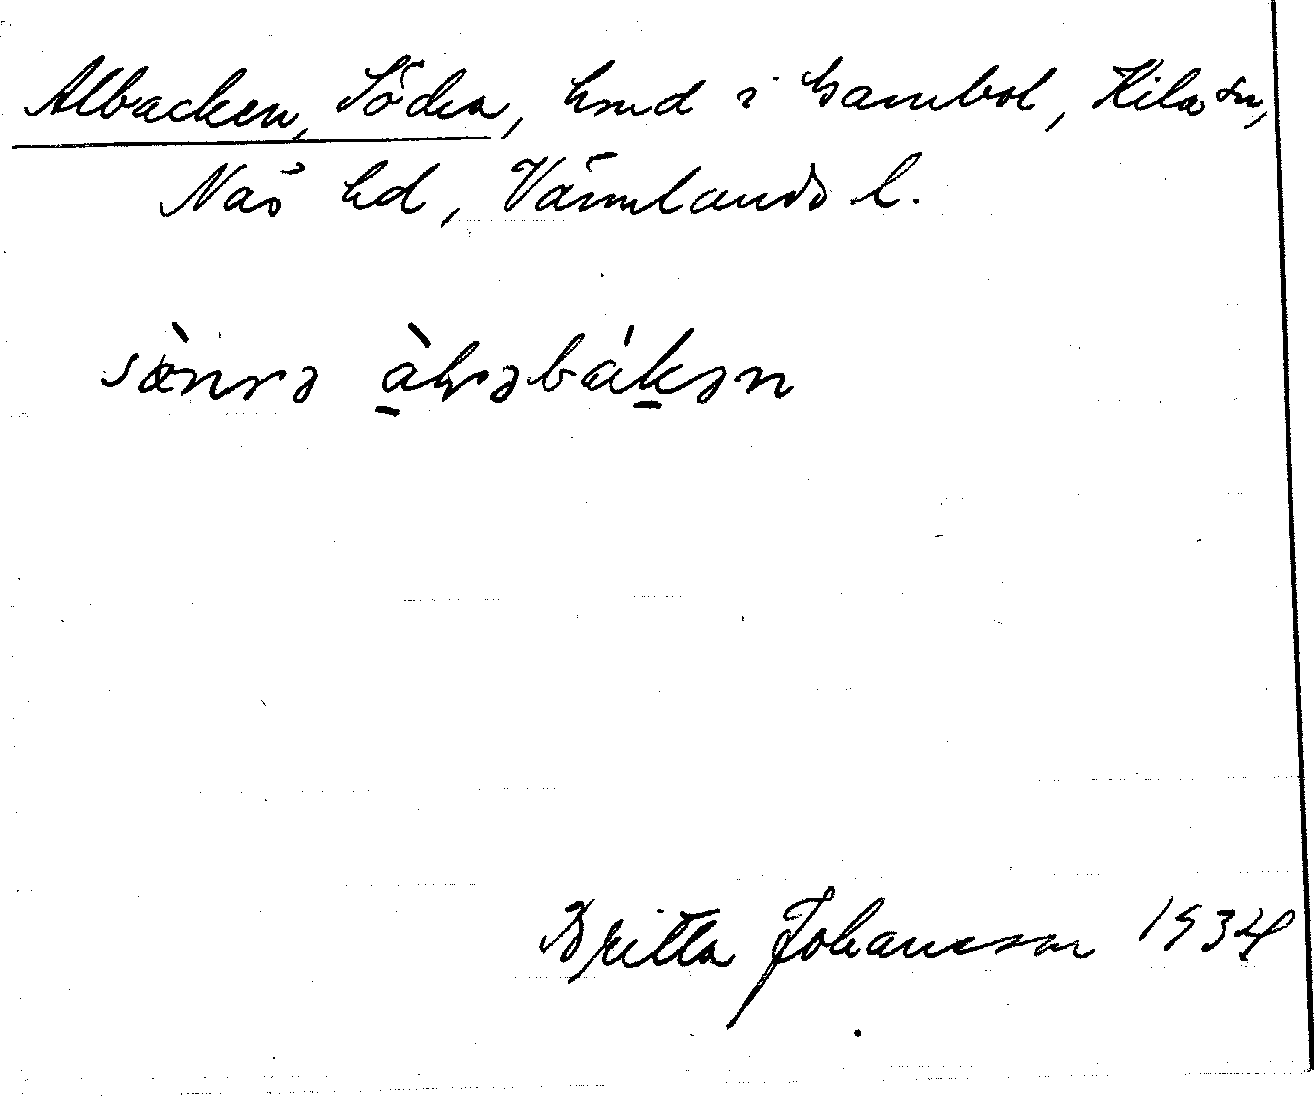 Albacken, Södra, hmd i Gambol, Kila sn,
Näs hd, Värmlands l.
sæ̀nrə àlvəbákən
Britta Johansson 1934